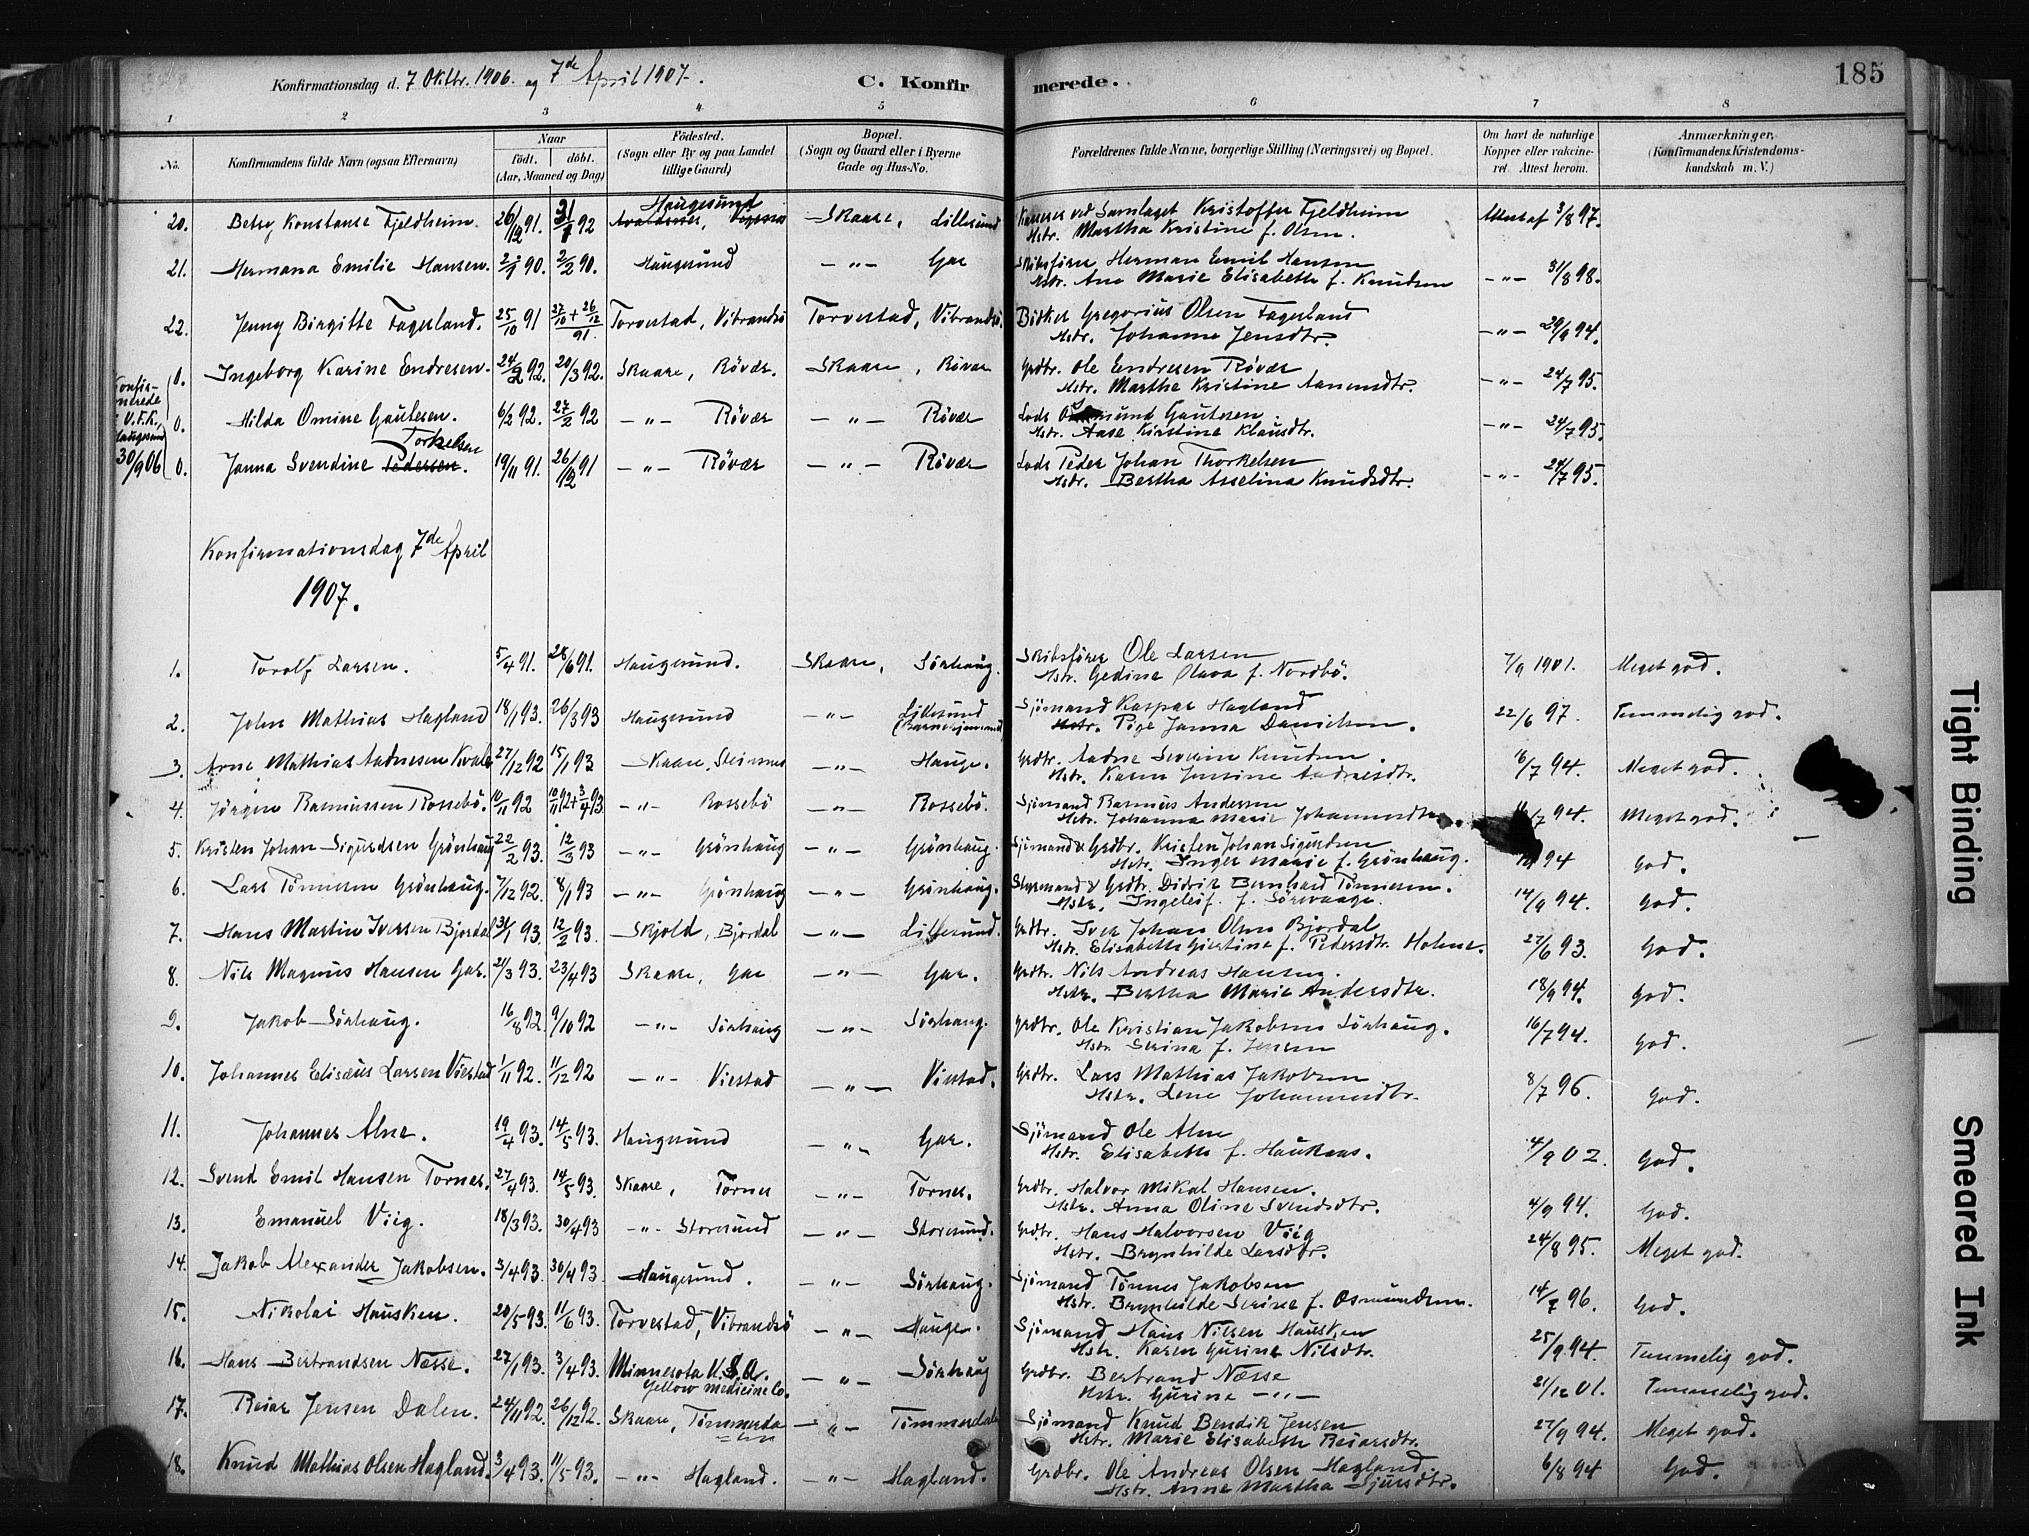 Konfirmationsdag d. 7 Oktbr. 1906. og 7de April 1907. C. Konfirmerede. 185
1 2 3 4 5 6 7 8
No. Konfirmandens fulde Navn (ogsaa Efternavn) Naar födt. döbt. (Aar, Maaned og Dag) Födested. (Sogn eller By og paa Landet tillige Gaard) Bopæl. (Sogn og Gaard eller i Byerne Gade og Hus-No. Forældrenes fulde Navne, borgerlige Stilling (Næringsvei) og Bopæl. Om havt de naturlige Kopper eller vakcineret. Attest herom. Anmærkninger, (Konfirmandens Kristendomskundskab m. V.)
20. Betsy Konstanse Fjeldheim. 26/12 91. 31/1 92 Haugesund Skaare, Lillesund Kasserer ved Samlaget Kristoffer Fjeldheim Attest af 3/8 97.
Hstr. Martha Kristine f. Olsen.
21. Hermana Emilie Hansen. 2/1 90. 2/2 90. Haugesund -"- Gar Skibsfører Herman Emil Hansen -"- 31/8 98.
Hstr. Ane Marie Elisabeth f. Knudsen
22. Jenny Birgitte Fagerland. 25/10 91 27/10 + 26/12 91. Torvestad, Vibrandsö Torvestad, Vibrandsö. Gregorius Olsen Fagerland -"- 29/9 94.
Hstr. Johanne Jensdtr.
Konfirmerede i V.F.K. Haugesund 30/9 06
0. Ingeborg Karine Endresen. 24/2 92. 20/3 92. Skaare, Rövær. Skaare, Rövær Grdbr. Ole Endresen Rövær -"- 24/7 95.
Hstr. Marthe Kristine Aanendtr.
0. Hilda Omine Gautesen. 6/2 92. 27/2 92 -"- Rövær -"- Rövær Lods Gautesen -"- 24/7 95.
Hstr. Aase Kirstine Klausdtr.
0. Janna Svendine Pedersen. Torkelsen 19/11 91. 26/12 91 -"- Rövær -"- Rövær Lods Peder Johan Thorkelsen -"- 24/7 95.
Hstr. Bertha Asselina Knudsdtr.
Konfirmationsdag 7de April
1907.
1. Torolf Larsen. 5/4 91. 28/6 91. Haugesund. Skaare, Sörhaug. Skibsfører Ole Larsen 7/9 1901. Meget god.
Hstr. Gedine Olava f. Nordbö.
2. John Mathias Hagland 18/1 93. 26/3 93 Haugesund -"- Lillesund (Barnehjemmet) Sjömand Kaspar Hagland 22/6 97. Temmelig god.
Hstr. Pige Janna Danielsen.
3. Arne Mathias Aadnesen Kvale 27/12 92 15/1 93 Skaare, Steinsnes -"- Hauge. Grdbr. Aadne Severin Knudsen. 16/7 94. Meget god.
Hstr. Karen Jensine Andreasdtr.
4. Jörgen Rasmussen Rossebö. 10/11 92 10/11 92 + 3/4 93 -"- Rossebö -"- Rossebö. Sjömand Rasmus Andersen /7 94. Meget god.
Hstr. Johanna Marie Johannesdtr.
5. Kristen Johan Sigurdsen Grönhaug 22/2 93. 12/3 93 -"- Grönhaug -"- Grönhaug. Sjömand & Grdbr. Kristen Johan Sigurdsen 94 God.
Hstr. Inger Marie f. Grönhaug.
6. Lars Tönnesen Grönhaug. 7/12 92. 8/1 93 -"- Grönhaug -"- Grönhaug. Styrmand & Grdbr. Didrik Bernhard Tönnesen. 14/9 94. God.
Hstr. Ingeleif f. Sörevaage.
7. Hans Martin Iversen Bjordal 31/1 93. 12/2 93. Skjold, Bjordal -"- Lillesund. Grdbr. Iver Johan Olsen Bjordal 27/6 93. God.
Hstr. Elisabeth Giertine f. Pedersdtr. Holme.
8. Nils Magnus Hansen Gar. 21/3 93. 23/4 93 Skaare, Gar -"- Gar. Grdbr. Nils Andreas Hansen. 18/9 94. God.
Hstr. Bertha Marie Andersdtr.
9. Jakob Sörhaug. 16/8 92. 9/10 92 -"- Sörhaug -"- Sörhaug. Grdbr. Ole Kristian Jakobsen Sörhaug. 16/7 94. God.
Hstr. Serina f. Jensen
10. Johannes Elisæus Larsen Viestad 1/11 92. 11/12 92 -"- Viestad -"- Viestad. Grdbr. Lars Mathias Jakobsen 8/7 96. God.
Hstr. Lene Johannesdtr.
11. Johannes Alne. 19/4 93. 14/5 93. Haugesund -"- Gar. Sjömand Ole Alne 4/9 02. God.
Hstr. Elisabeth f. Haukaas.
12. Svend Emil Hansen Tornes. 27/4 93. 14/5 93. Skaare, Tornes -"- Tornes. Grdbr. Halvor Mikal Hansen. 4/9 94. God.
Hstr. Anna Oline Svendsdtr.
13. Emanuel Viig. 18/3 93. 30/4 93 -"- Storesund -"- Storesund. Grdbr. Hans Halvorsen Viig 24/8 95. Meget god.
Hstr. Brynhilde Larsdtr.
14. Jakob Alexander Jakobsen. 3/4 93. 30/4 93. Haugesund. -"- Sörhaug. Sjömand Tönnes Jakobsen 14/7 96. God.
Hstr. Brynhilde Serine f. Osmundsen.
15. Nikolai Hausken. 20/5 93. 11/6 93. Torvestad, Vibrandsö -"- Hauge. Sjömand Hans Nilsen Hausken 25/9 94. Temmelig god.
Hstr. Karen Gurine Nilsdtr.
16. Hans Bertrandsen Næsse. 27/1 93. 3/4 93. Minnesota U.S.A. Yellow Medicine Co. -"- Sörhaug Grdbr. Bertrand Næsse 21/12 01. Temmelig god.
Hstr. Gurine -"-
17. Reiar Jensen Dalen. 24/11 92. 26/12 92. Skaare, Tömmerdalen -"- Tömmerdalen Sjömand Knud Bendik Jensen 27/9 94. Meget god.
Hstr. Marie Elisabeth Reiarsdtr.
18. Knud Mathias Olsen Hagland. 3/4 93. 11/5 93. -"- Hagland. -"- Hagland. Grdbr. Ole Andreas Olsen Hagland. 6/8 94 God.
Hstr. Anne Martha Sjursdtr.
Tight Binding
Smeared Ink